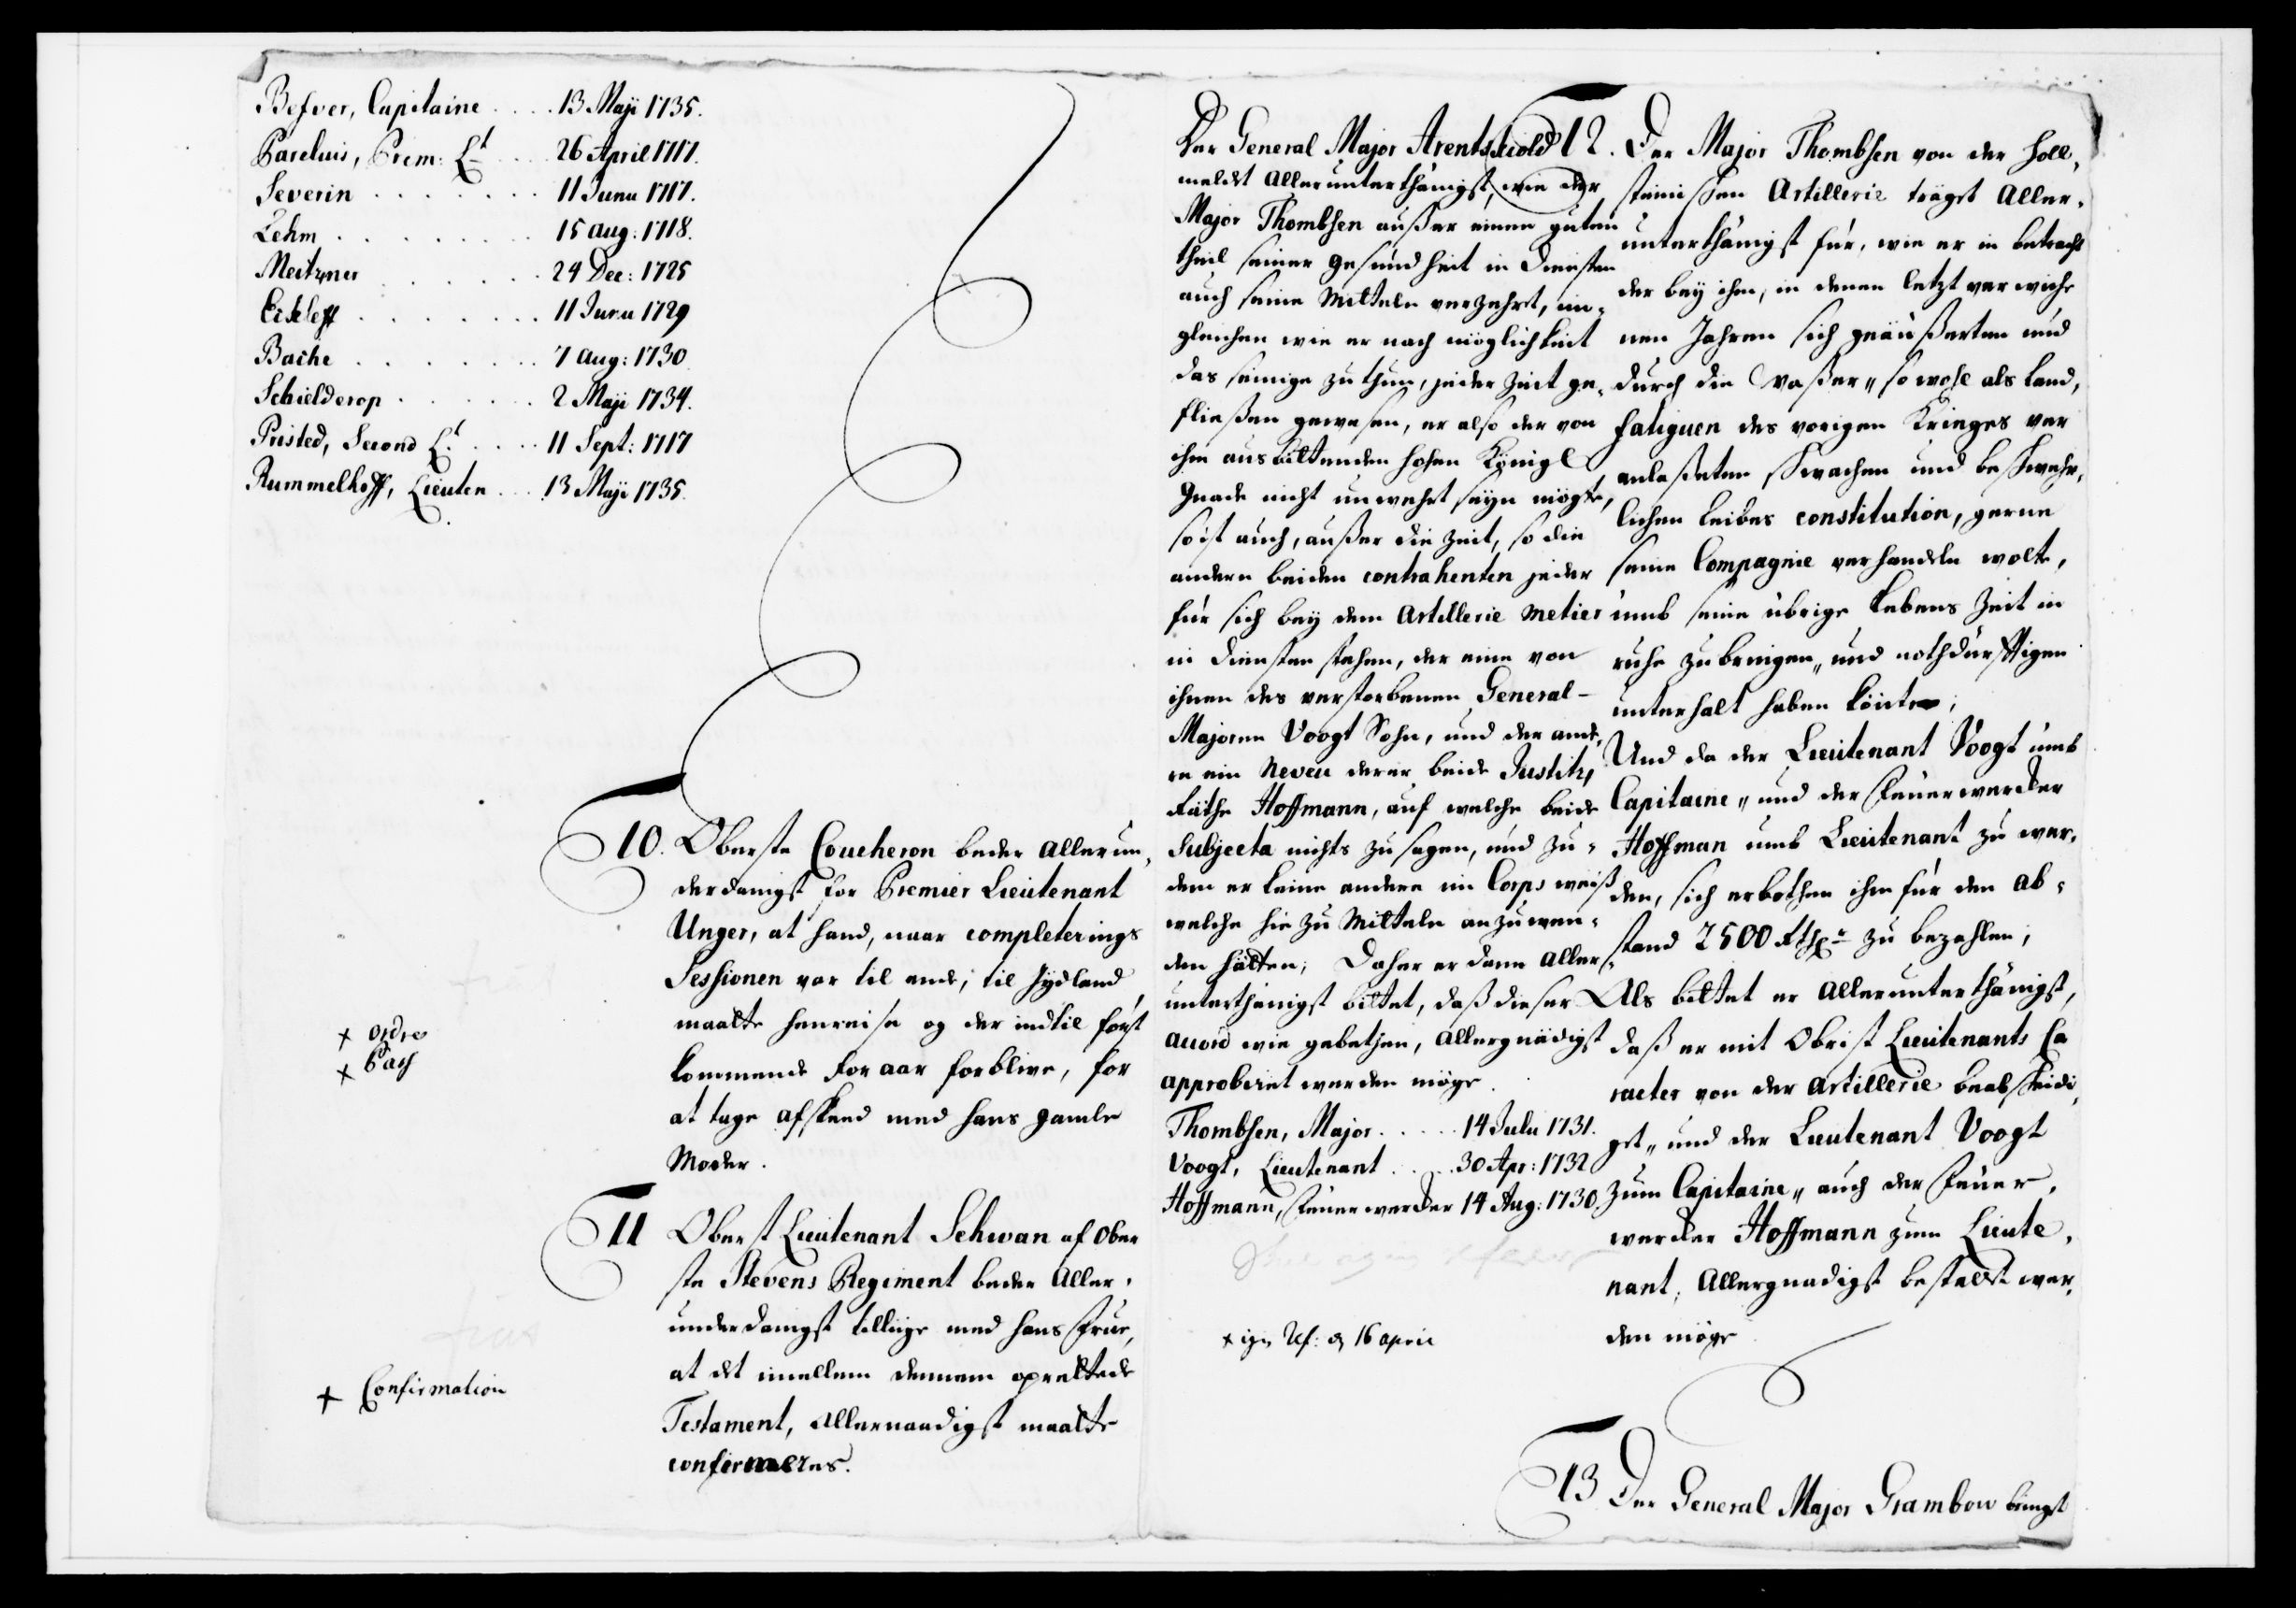 Befver, Capitaine . . . . 13 Maji 1735.
Pareluis, Prem: Lt . . . 26 April 1717.
Severin . . . . . . . 11 Junii 1717.
Lehm . . . . . . . . 15 Aug: 1718.
Meitzner . . . . . . 24 Dec: 1725
Eickleff . . . . . . . 11 Junii 1729
Bache . . . . . . . 7 Aug: 1730
Schielderop . . . . . . 2 Maji 1734.
Pristed, Second Lt. . . . . 11 Sept: 1717
Rummelhoff, Lieuten . . . 13 Maji 1735.
10. Oberste Coucheron beder allerun,
derdanigst for Premier Lieutenant
Unger, at hand, naar completerings
Sessionen var til ende, til Jydland
maatte henreise og der indtil først
kommende for aar forblive, for
at tage afskeed med hans gamle
Moder.
× ordre
× Pass
11 Oberst Lieutenant Schwan af Ober
ste Stevens Regiment beder Aller,
underdanigst tillige med hans Frue,
at det imellem dennem oprettede
Testament, Allernaadigst maatte
confirmeres.
× Confirmation
Der General Major Arentskiold
meldt allerunterthänigst, wie der
Major Thombsen außer einen guten
theil seiner gesundheit in Diensten
auch seine Mitteln verzehrt, im,
gleichen wie er nach möglichkeit
das seinige zu thun, jeder Zeit ge,
fließen gewesen, er also der von
ihm ausbittenden hohen Königl
Gnade nicht unwehrt seyn mögte,
so ist auch, außer die Zeit, so die
andern beiden contrahenten jeder
für sich bey dem Artillerie Metier
in Diensten stehen, der eine von
ihnen des verstorbenen General-
Majoren Voogt Sohn, und der ande,
re ein Neveu derer beide Justitz
Räthe Hoffmann, auf welche beide
Subjecta nichts zu sagen, und zu,
dem er keine andere im Corps weiß
welche hie zu Mitteln anzuwen,
den hätten; Daher er dann Aller,
unterthänigst bittet, daß dieser
accord wie gebethen, Allergnädigst
approbiret werden möge.
Thombsen, Major . . . . . 14 Julii 1731.
Voogt, Lieutenant . . . . 30 Apr: 1732
Hoffmann, Feuerwerker 14 Aug: 1730.
× 16 april
12. Der Major Thombsen von der Holl,
steinischen Artillerie träget Aller,
unterthänigst für, wie er in betracht
der bey ihm, in denen letzt verwiche
nen Jahren sich geäußerten und
durch die Waßer,, so wohl als Land,
fatiguen des vorigen Krieges ver
anlaßeten schwachen und beschwehr,
lichen Leibes constitution, gerne
seine Compagnie verhandeln wolte,
umb seine übrige Lebens Zeit in
ruhe zubringen,, und nothdürfftigen
unterhalt haben könte;
Und da der Lieutenant Voogt umb
Capitaine,, und der Feuerwerker
Hoffman umb Lieutenant zu wer,
den, sich erbothen ihm für den ab,
stand 2500 Rthr zu bezahlen;
Als bittet er Allerunterthänigst,
daß er mit Obrist Lieutenants Ca
racter von der Artillerie beabscheidi,
get,, und der Lieutenant Voogt
zum Capitaine,, auch der Feuer,
werker Hoffmann zum Lieute,
nant, Allergnädigst bestellt wer,
den möge
13 Der General Major Grambow bringt